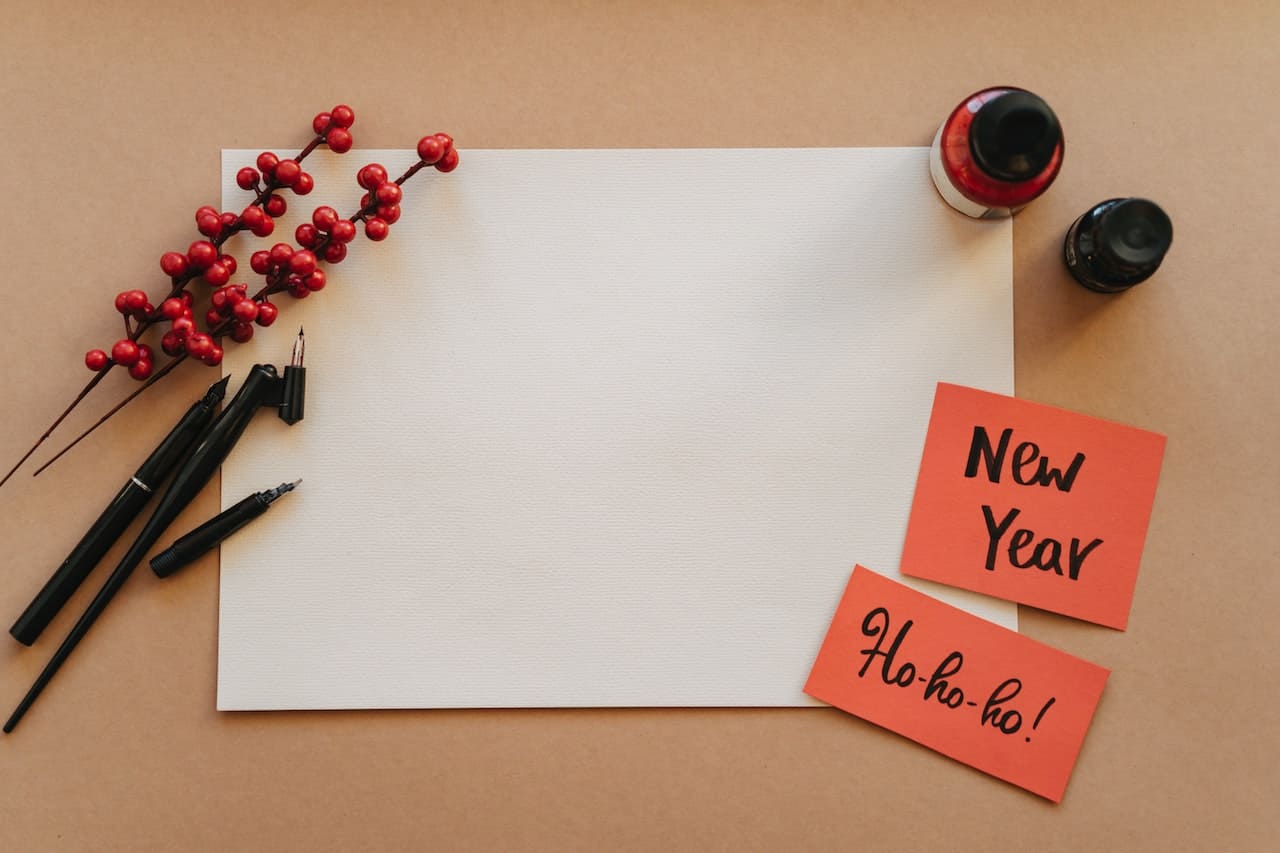 New
Year
Ho-ho-ho!